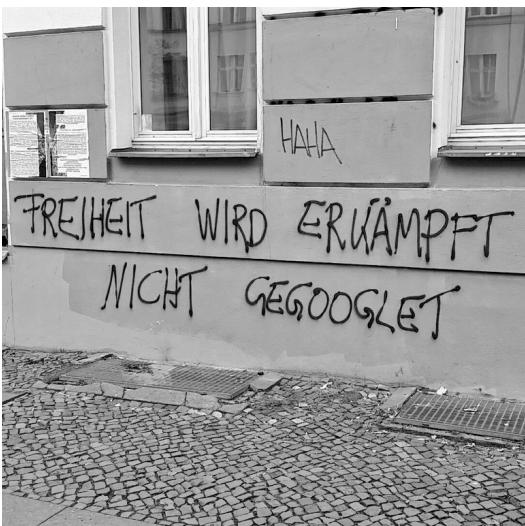 HAHA
FREIHEIT WIRD ERKÄMPFT
NICHT GEGOOGLET